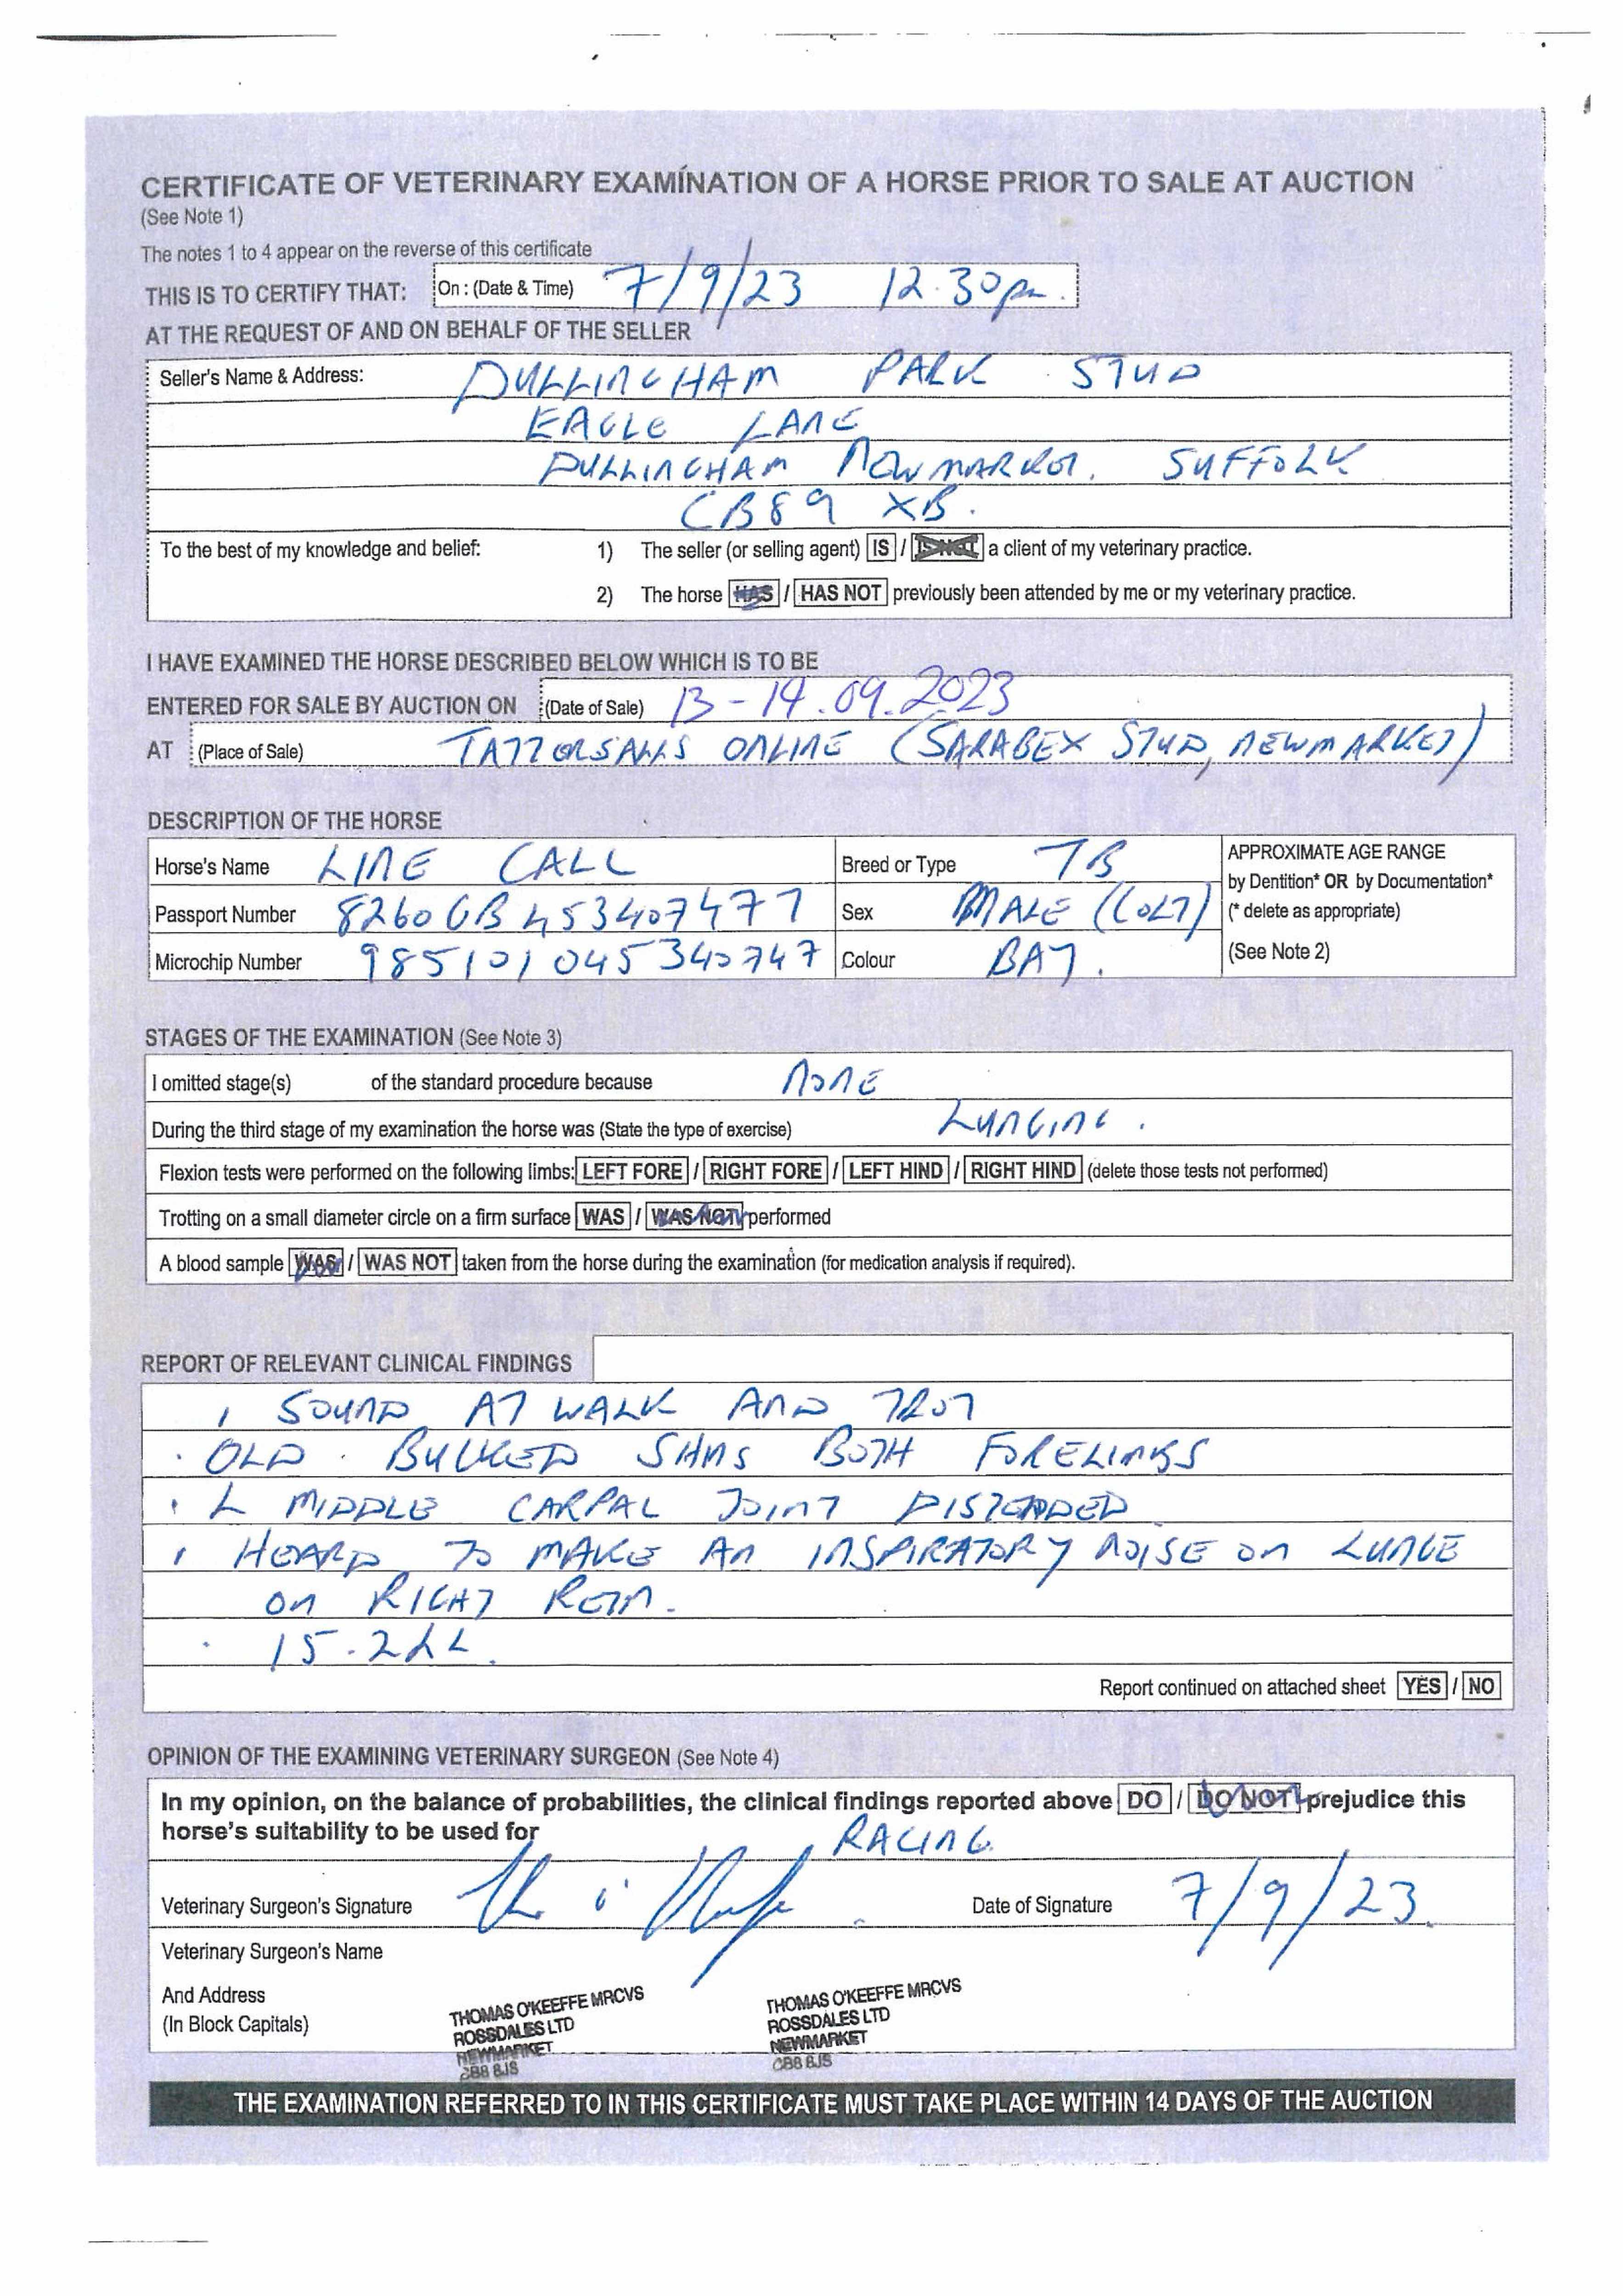 CERTIFICATE OF VETERINARY EXAMINATION OF A HORSE PRIOR TO SALE AT AUCTION
(See Note 1)
The notes 1 to 4 appear on the reverse of this certificate
THIS IS TO CERTIFY THAT: On : (Date & Time) 7/9/23 12.30pm.
AT THE REQUEST OF AND ON BEHALF OF THE SELLER
Seller's Name & Address: DULLINGHAM PARK STUD
EAGLE LANE
DULLINGHAM NEWMARKET. SUFFOLK
CB89 XB.
To the best of my knowledge and belief: 1) The seller (or selling agent) IS / IS NOT a client of my veterinary practice.
2) The horse HAS / HAS NOT previously been attended by me or my veterinary practice.
I HAVE EXAMINED THE HORSE DESCRIBED BELOW WHICH IS TO BE
ENTERED FOR SALE BY AUCTION ON (Date of Sale) 13-14.09.2023
AT (Place of Sale) TATTERSALLS ONLINE (SARABEX STUD, NEWMARKET)
DESCRIPTION OF THE HORSE
Horse's Name LINE CALL Breed or Type TB APPROXIMATE AGE RANGE
by Dentition* OR by Documentation*
Passport Number 8260GB453407477 Sex MALE (COLT) (* delete as appropriate)
Microchip Number 985101045340747 Colour BAY. (See Note 2)
STAGES OF THE EXAMINATION (See Note 3)
I omitted stage(s) of the standard procedure because NONE
During the third stage of my examination the horse was (State the type of exercise) LUNGING.
Flexion tests were performed on the following limbs: LEFT FORE / RIGHT FORE / LEFT HIND / RIGHT HIND (delete those tests not performed)
Trotting on a small diameter circle on a firm surface WAS / WAS NOT performed
A blood sample WAS / WAS NOT taken from the horse during the examination (for medication analysis if required).
REPORT OF RELEVANT CLINICAL FINDINGS
· SOUND AT WALK AND TROT
· OLD BUCKED SHINS BOTH FORELIMBS
· L MIDDLE CARPAL JOINT DISTENDED
· HEARD TO MAKE AN INSPIRATORY NOISE ON LUNGE
ON RIGHT REIN.
· 15.2hh.
Report continued on attached sheet YES / NO
OPINION OF THE EXAMINING VETERINARY SURGEON (See Note 4)
In my opinion, on the balance of probabilities, the clinical findings reported above DO / DO NOT prejudice this
horse's suitability to be used for RACING
Veterinary Surgeon's Signature Date of Signature 7/9/23.
Veterinary Surgeon's Name
And Address
(In Block Capitals)
THOMAS O'KEEFFE MRCVS
ROSSDALES LTD
NEWMARKET
CB8 8JS
THOMAS O'KEEFFE MRCVS
ROSSDALES LTD
NEWMARKET
CB8 8JS
THE EXAMINATION REFERRED TO IN THIS CERTIFICATE MUST TAKE PLACE WITHIN 14 DAYS OF THE AUCTION